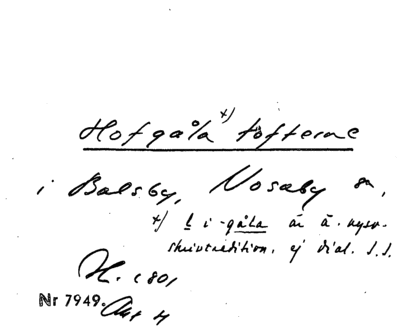 Hofgåla +) tofterne
i Balsby, Nosaby sn,
+) l i -gåla är ä. nysv.
skrivtradition, ej dial. I.I.
H. 1801
Nr 7949. Akt 4